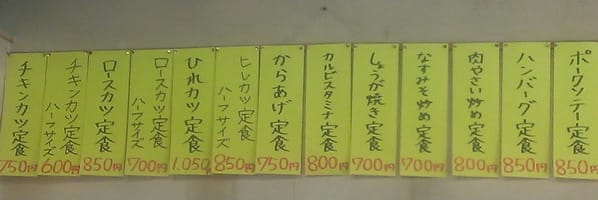 ポークソテー定食
850円
ハンバーグ定食
850円
肉やさい炒め定食
800円
なすみそ炒め定食
700円
しょうが焼き定食
700円
カルビスタミナ定食
800円
からあげ定食
750円
ヒレカツ定食
ハーフサイズ
850円
ひれカツ定食
1,050円
ロースカツ定食
ハーフサイズ
700円
ロースカツ定食
850円
チキンカツ定食
ハーフサイズ
600円
チキンカツ定食
750円